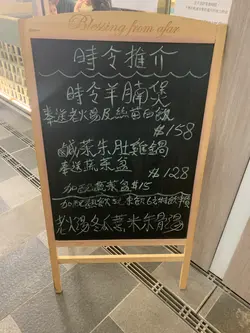 Blessing from afar
時令推介
時令羊腩煲
奉送老火湯及絲苗白飯
$158
鹹菜朱肚雞鍋
奉送蔬菜盆
$128
加配蔬菜盆$15
老火湯冬瓜薏米朱骨湯